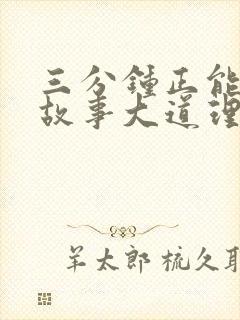 三分鍾正能
故事大道理
羊太郎 梳久耳